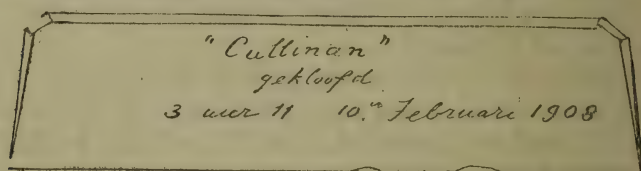 "Cullinan"
gekloofd
3 uur 11 10.en Februari 1908